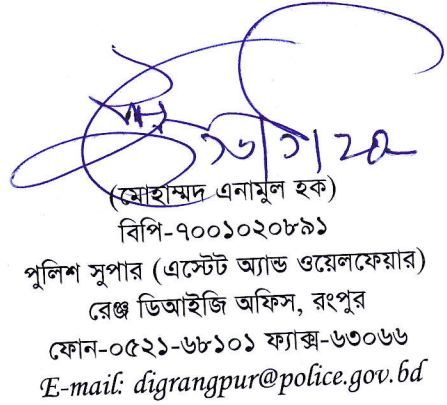 ১৬/১/২০
(মোহাম্মদ এনামুল হক)
বিপি-৭০০১০২০৮৯১
পুলিশ সুপার (এস্টেট অ্যান্ড ওয়েলফেয়ার)
রেঞ্জ ডিআইজি অফিস, রংপুর
ফোন-০৫২১-৬৮১০১ ফ্যাক্স-৬৩০৬৬
E-mail: digrangpur@police.gov.bd